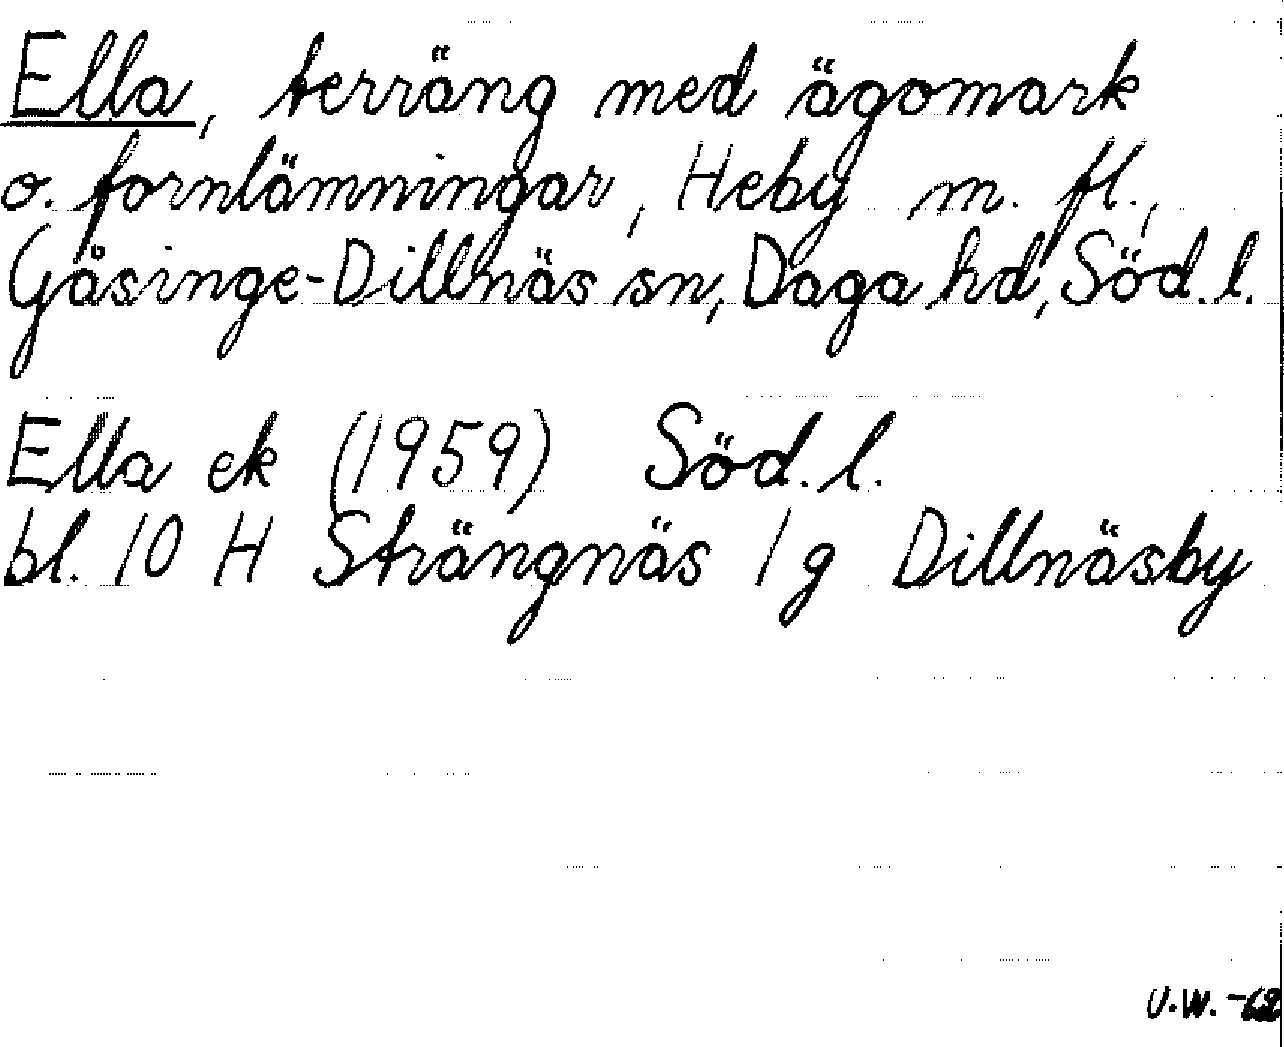 Ella, terräng med ägomark
o. fornlämningar, Heby m. fl.,
Gåsinge-Dillnäs sn, Daga hd, Söd. l.
Ella ek (1959) Söd. l.
bl. 10 H Strängnäs 1 g Dillnäsby
U.W. -62